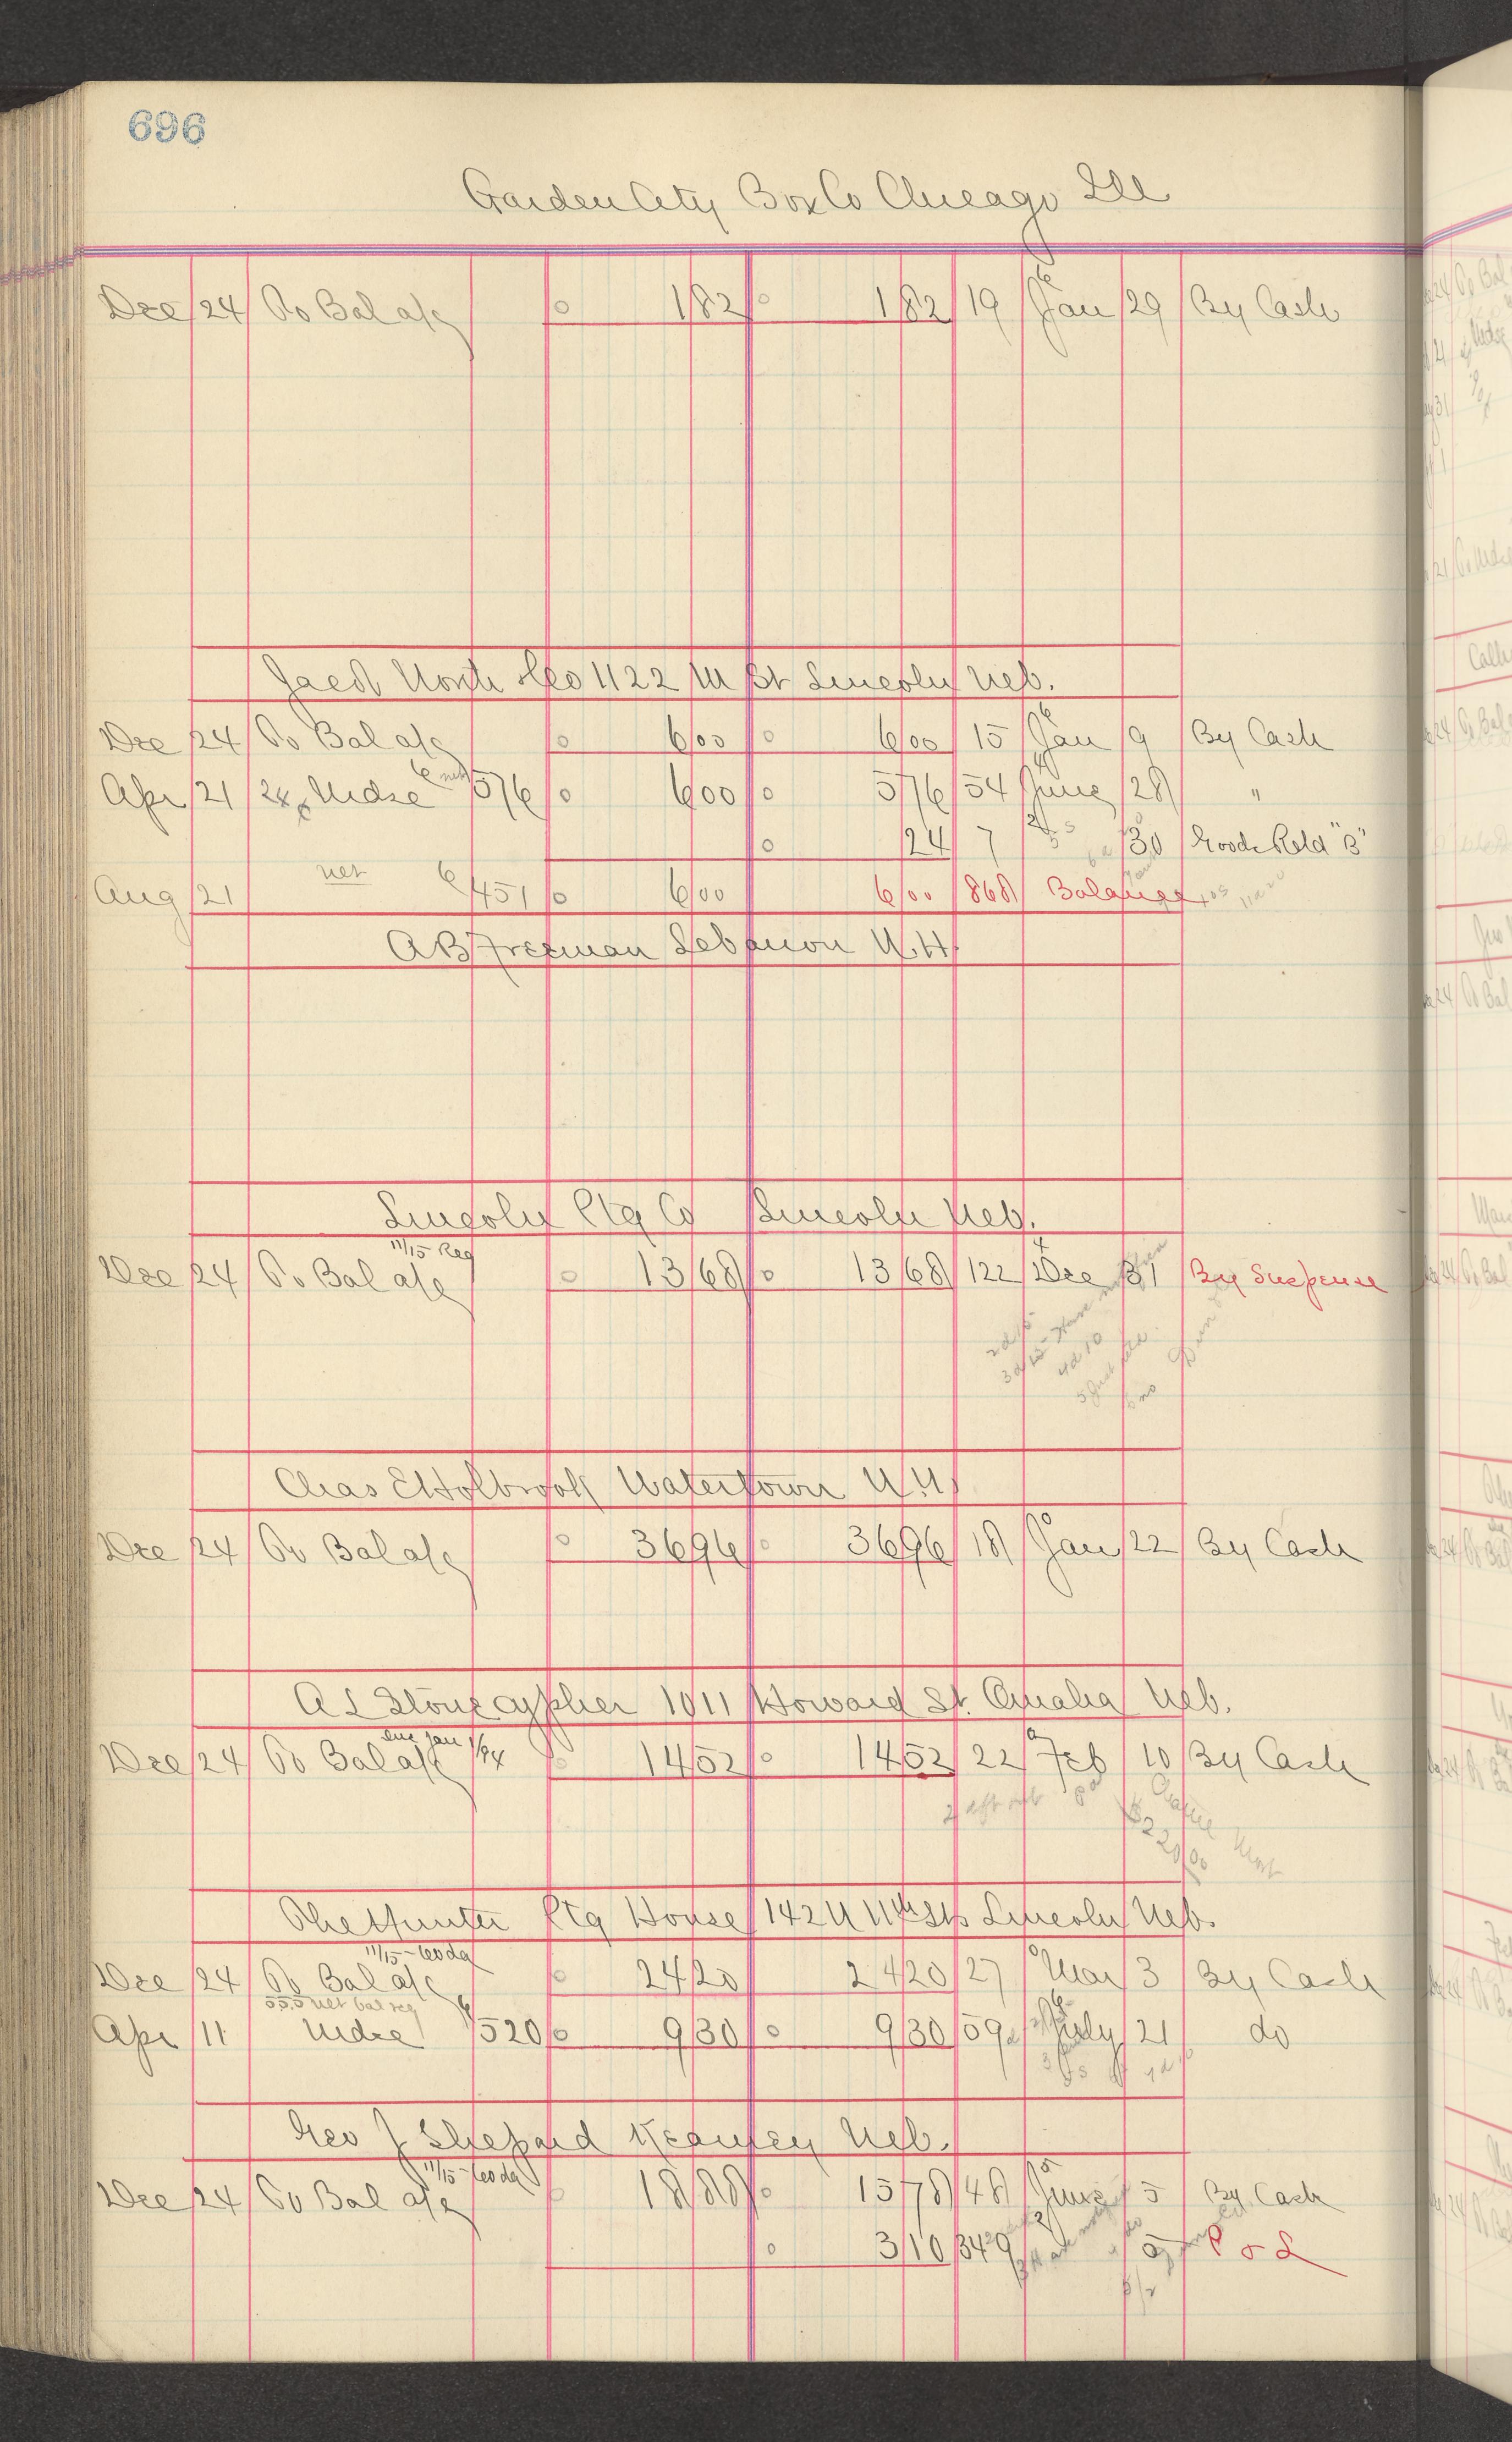 696
Garden City Box Co Chicago Ill
Dec 24 To Bal a/c 1 82 1 82 19 Jan 29 By Cash
Jacob North & Co 1122 M St Lincoln Neb.
Dec 24 To Bal a/c 6 00 6 00 15 Jan 9 By Cash
Apr 21 Mdse 6 576 6 00 5 76 54 June 28 "
24 7 30 Goods Retd "B"
Aug 21 net 6 451 6 00 6 00 868 Balance
A B Freeman Lebanon N.H.
Lincoln Ptg Co Lincoln Neb.
11/15 Reg
Dec 24 To Bal a/c 13 68 13 68 122 Dec 31 By Suspense
Chas E Holbrook Watertown N.Y.
Dec 24 To Bal a/c 36 96 36 96 18 Jan 22 By Cash
A L Stonecypher 1011 Howard St. Omaha Neb.
due Jan 1/94
Dec 24 To Bal a/c 14 52 14 52 22 Feb 10 By Cash
The Hunter Ptg House 142 N 11th St Lincoln Neb.
11/15 - 60 da
Dec 24 To Bal a/c 24 20 24 20 27 Mar 3 By Cash
net bal reg
Apr 11 Mdse 6 520 9 30 9 30 59 July 21 do
Geo J Shepard Kearney Neb.
11/15 - 60 da
Dec 24 To Bal a/c 18 88 15 78 48 June 5 By Cash
3 10 349 5 P & L